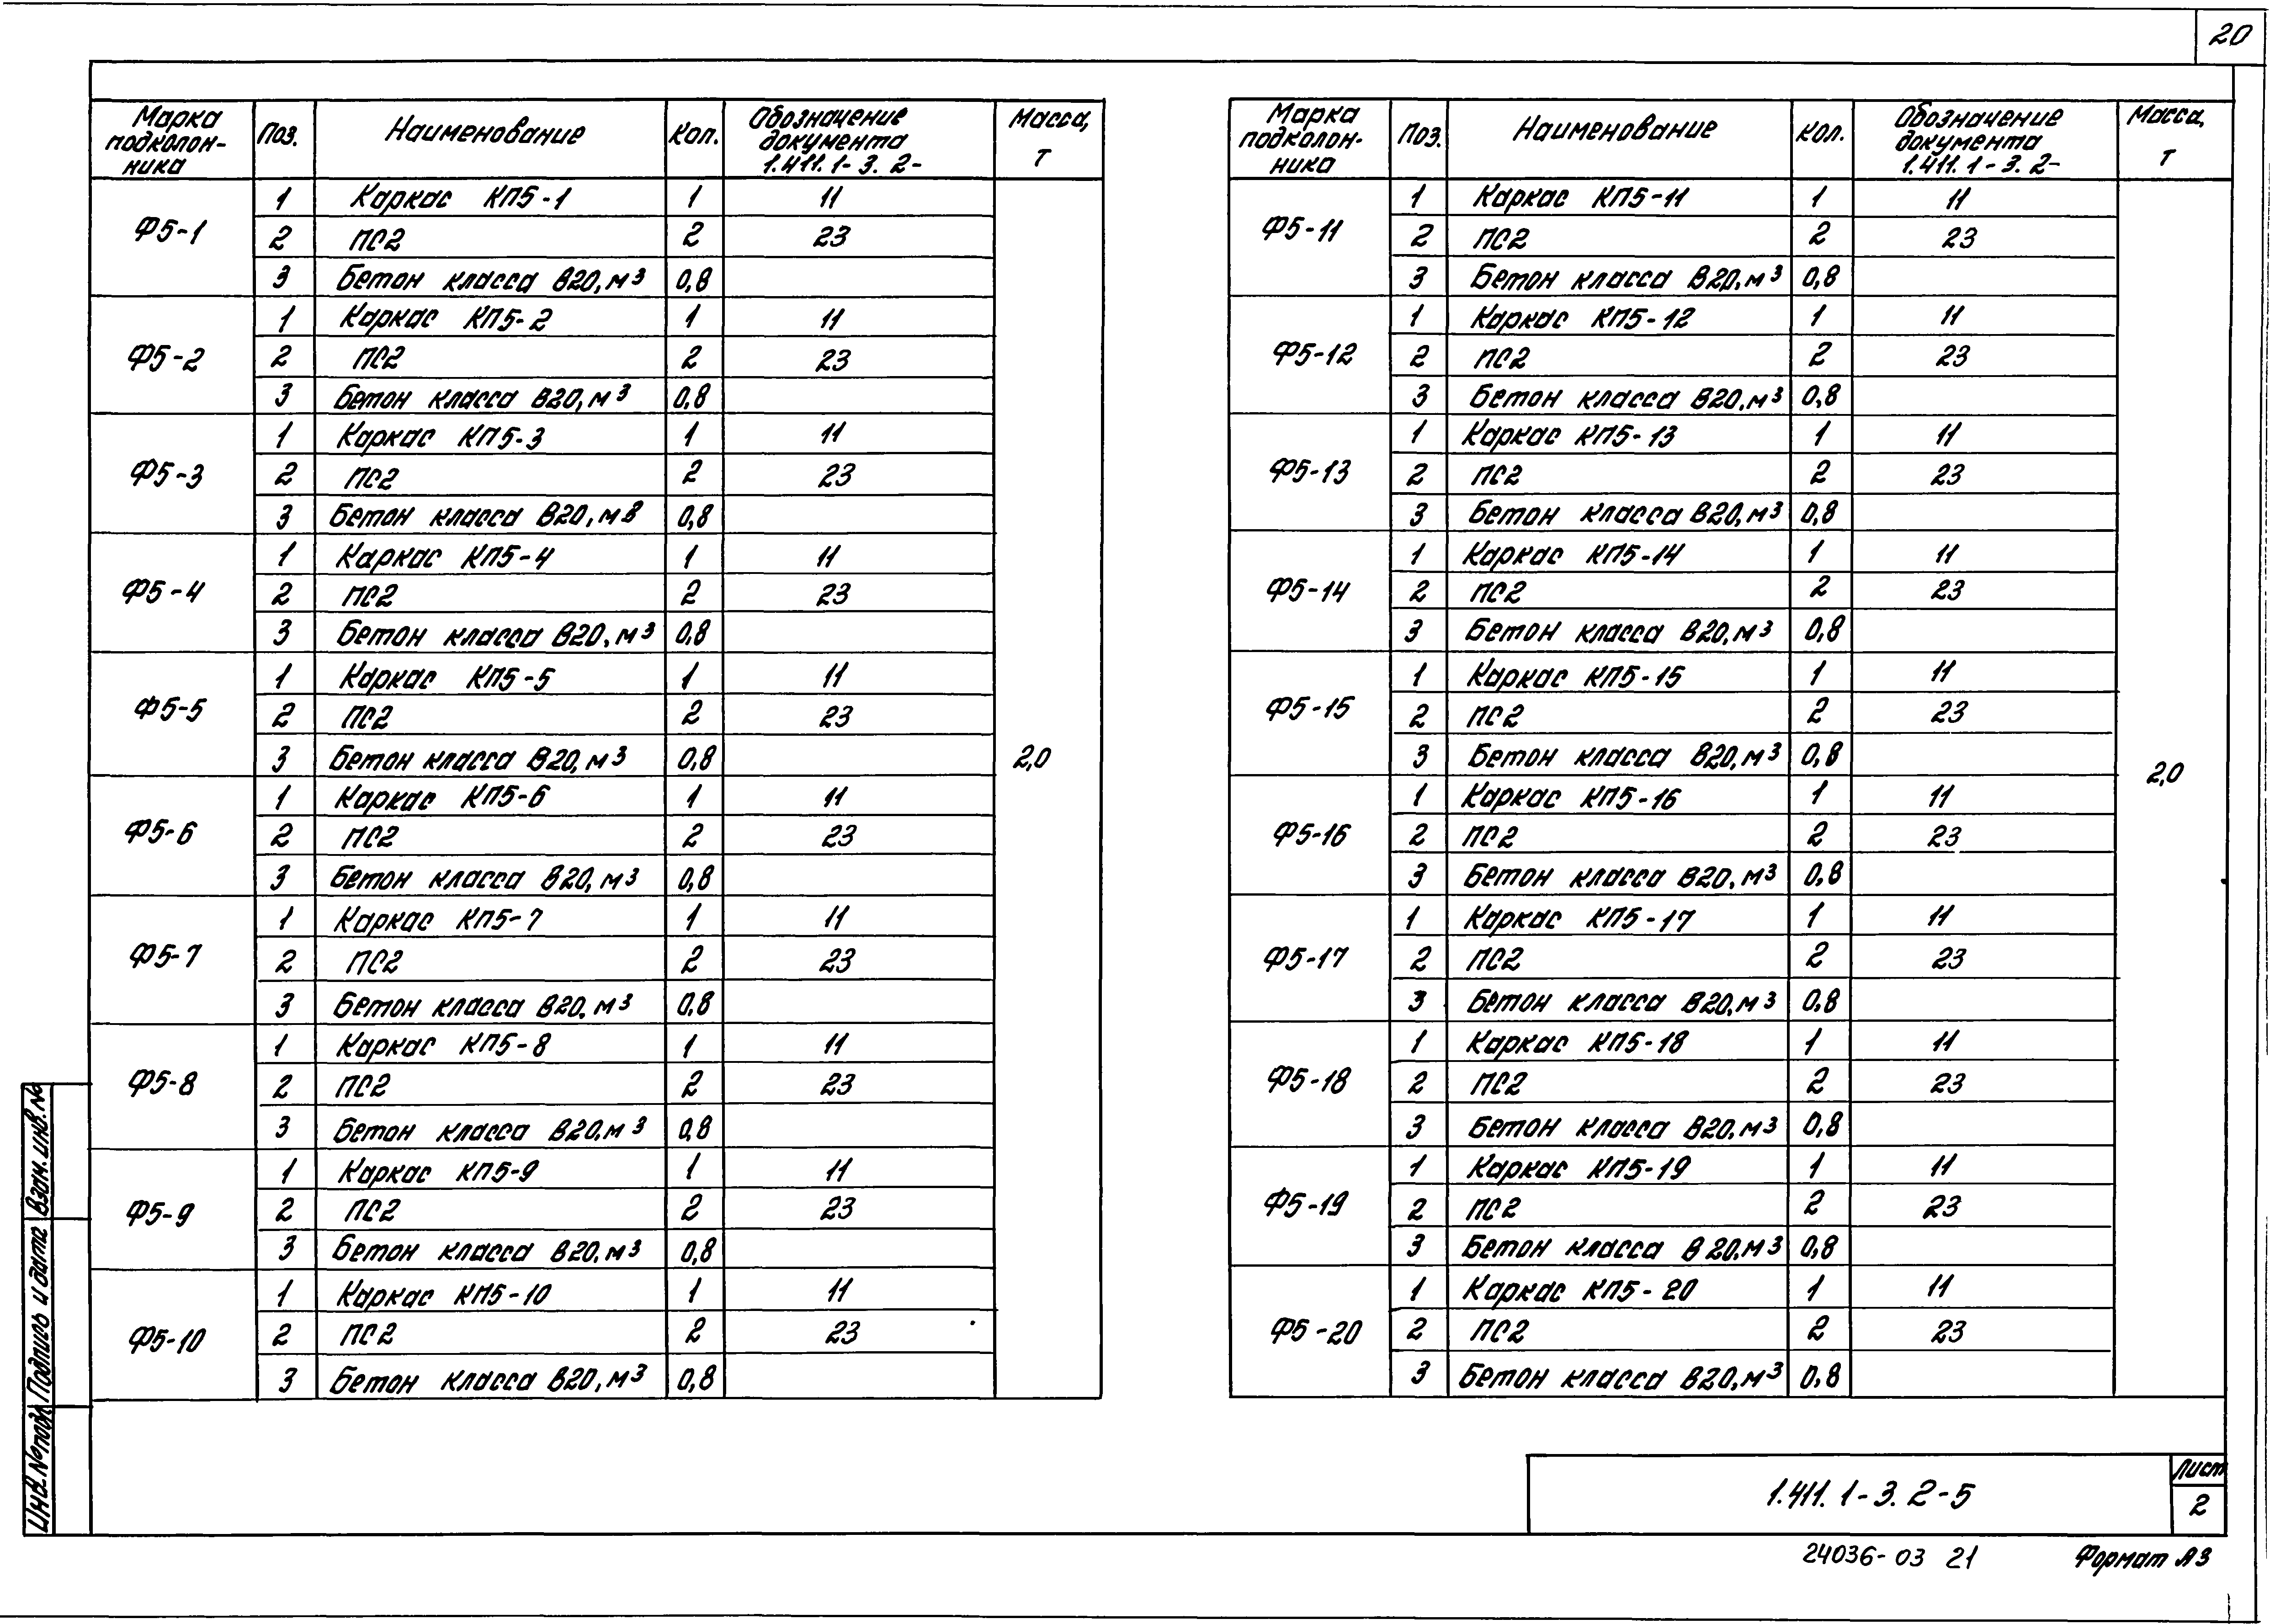 20
Марка подколонника Поз. Наименование Кол. Обозначение документа 1.411.1-3.2- Масса, т
Ф5-1 1 Каркас КП5-1 1 11
2 ПС2 2 23
3 Бетон класса В20, м3 0,8
Ф5-2 1 Каркас КП5-2 1 11
2 ПС2 2 23
3 Бетон класса В20, м3 0,8
Ф5-3 1 Каркас КП5-3 1 11
2 ПС2 2 23
3 Бетон класса В20, м3 0,8
Ф5-4 1 Каркас КП5-4 1 11
2 ПС2 2 23
3 Бетон класса В20, м3 0,8
Ф5-5 1 Каркас КП5-5 1 11
2 ПС2 2 23
3 Бетон класса В20, м3 0,8
2,0
Ф5-6 1 Каркас КП5-6 1 11
2 ПС2 2 23
3 Бетон класса В20, м3 0,8
Ф5-7 1 Каркас КП5-7 1 11
2 ПС2 2 23
3 Бетон класса В20, м3 0,8
Ф5-8 1 Каркас КП5-8 1 11
2 ПС2 2 23
3 Бетон класса В20, м3 0,8
Ф5-9 1 Каркас КП5-9 1 11
2 ПС2 2 23
3 Бетон класса В20, м3 0,8
Ф5-10 1 Каркас КП5-10 1 11
2 ПС2 2 23
3 Бетон класса В20, м3 0,8
Марка подколонника Поз. Наименование Кол. Обозначение документа 1.411.1-3.2- Масса, т
Ф5-11 1 Каркас КП5-11 1 11
2 ПС2 2 23
3 Бетон класса В20, м3 0,8
Ф5-12 1 Каркас КП5-12 1 11
2 ПС2 2 23
3 Бетон класса В20, м3 0,8
Ф5-13 1 Каркас КП5-13 1 11
2 ПС2 2 23
3 Бетон класса В20, м3 0,8
Ф5-14 1 Каркас КП5-14 1 11
2 ПС2 2 23
3 Бетон класса В20, м3 0,8
Ф5-15 1 Каркас КП5-15 1 11
2 ПС2 2 23
3 Бетон класса В20, м3 0,8
2,0
Ф5-16 1 Каркас КП5-16 1 11
2 ПС2 2 23
3 Бетон класса В20, м3 0,8
Ф5-17 1 Каркас КП5-17 1 11
2 ПС2 2 23
3 Бетон класса В20, м3 0,8
Ф5-18 1 Каркас КП5-18 1 11
2 ПС2 2 23
3 Бетон класса В20, м3 0,8
Ф5-19 1 Каркас КП5-19 1 11
2 ПС2 2 23
3 Бетон класса В20, м3 0,8
Ф5-20 1 Каркас КП5-20 1 11
2 ПС2 2 23
3 Бетон класса В20, м3 0,8
Инв. № подл. Подпись и дата Взам. инв. №
1.411.1-3.2-5
Лист
2
24036-03 21
Формат А3